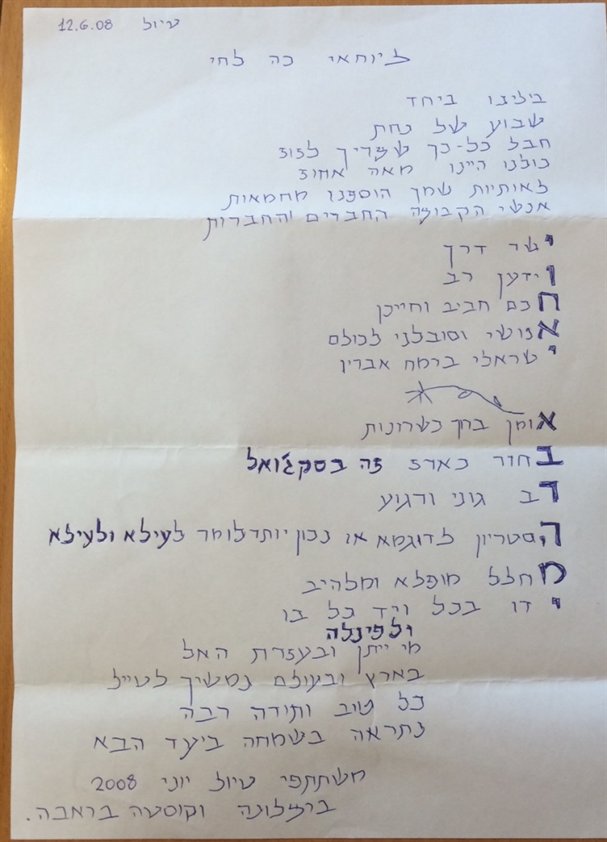 טיול 12.6.08
ליוחאי כה לחי
בילינו ביחד
שבוע של נחת
חבל כל-כך שצריך לזוז
כולנו היינו מאה אחוז
לאותיות שמך הוספנו מחמאות
אנשי הקבוצה החברים והחברות
ישר דרך
וידען רב
חכם חביב וחייכן
אנושי וסובלני לכולם
ישראלי ברמח אברין
אומן בחן כשרונות
בחור כארז זה בסקג'ואל
רב גוני ורגוע
הסטריון לדוגמא או נכון יותר לומר לעילא ולעילא
מחלל מופלא ומלהיב
ידו בכל ויד כל בו
ולפינלה
מי ייתן ובעזרת האל
בארץ ובעולם נמשיך לטייל
כל טוב ותודה רבה
נתראה בשמחה ביעד הבא
משתתפי טיול יוני 2008
ברצלונה וקוסטה בראבה.